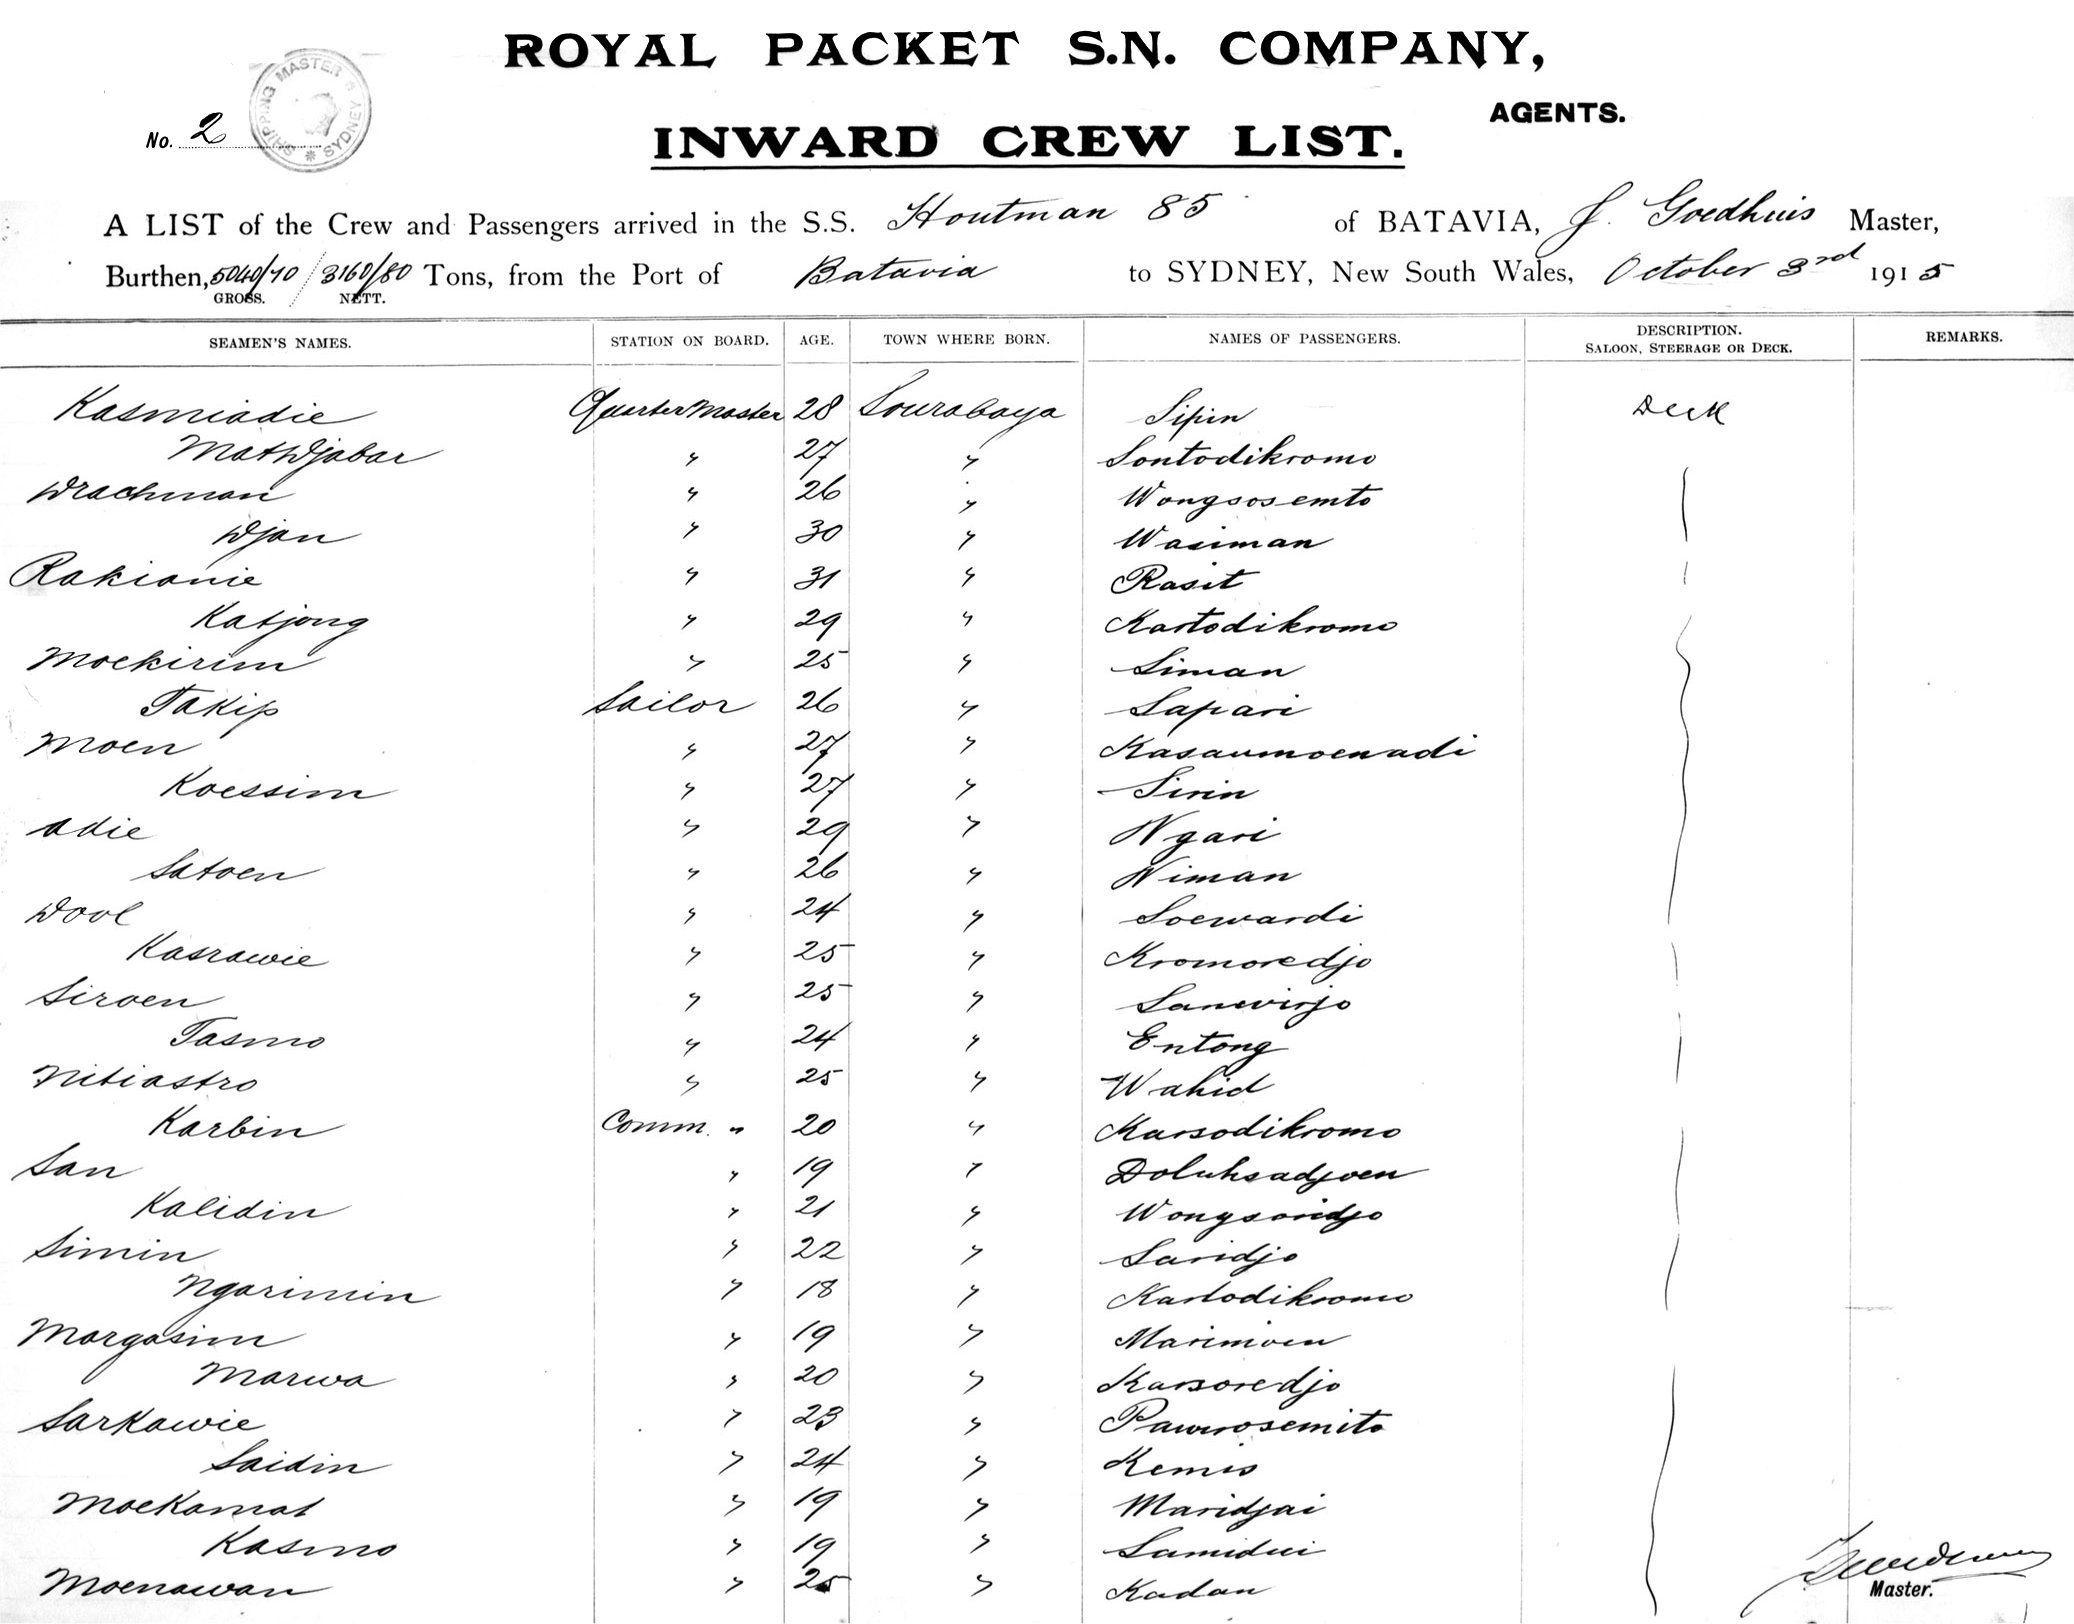 ROYAL PACKET S.N. COMPANY,
AGENTS.
SHIPPING MASTER SYDNEY
No. 2
INWARD CREW LIST.
A LIST of the Crew and Passengers arrived in the S.S. Houtman 85 of BATAVIA, J. Goedhuis Master,
Burthen, 5040/70 / 3160/80 Tons, from the Port of Batavia to SYDNEY, New South Wales, October 3rd 1915
GROSS. NETT.
SEAMEN'S NAMES. STATION ON BOARD. AGE. TOWN WHERE BORN. NAMES OF PASSENGERS. DESCRIPTION. SALOON, STEERAGE OR DECK. REMARKS.
Kasmiadie Quarter Master 28 Sourabaya Sipin Deck
MatDjabar " 27 " Sontodikromo
Drachman " 26 " Wongsosemto
Djan " 30 " Wasiman
Rakianie " 31 " Rasit
Katjong " 29 " Kartodikromo
Moekirim " 25 " Siman
Takip Sailor 26 " Sapari
Moen " 27 " Kasanmoenadi
Koessim " 27 " Sirin
Adie " 29 " Ngari
Satoen " 26 " Niman
Dool " 24 " Soewardi
Kasrawie " 25 " Kromoredjo
Siroen " 25 " Sanevirjo
Tasmo " 24 " Entong
Nitiastro " 25 " Wahid
Karbin Comm. " 20 " Karsodikromo
San " 19 " Doluhsadjoen
Kalidin " 21 "
Simin " 22 " Saridjo
Ngarimin " 18 " Kartodikromo
Margasim " 19 " Marimoen
Marwa " 20 " Karsoredjo
Sarkawie " 23 " Pawirosemito
Saidin " 24 " Kemis
Moekamat " 19 " Maridjai
Kasmo " 19 "
Moenawan " 25 " Kadan
Master.